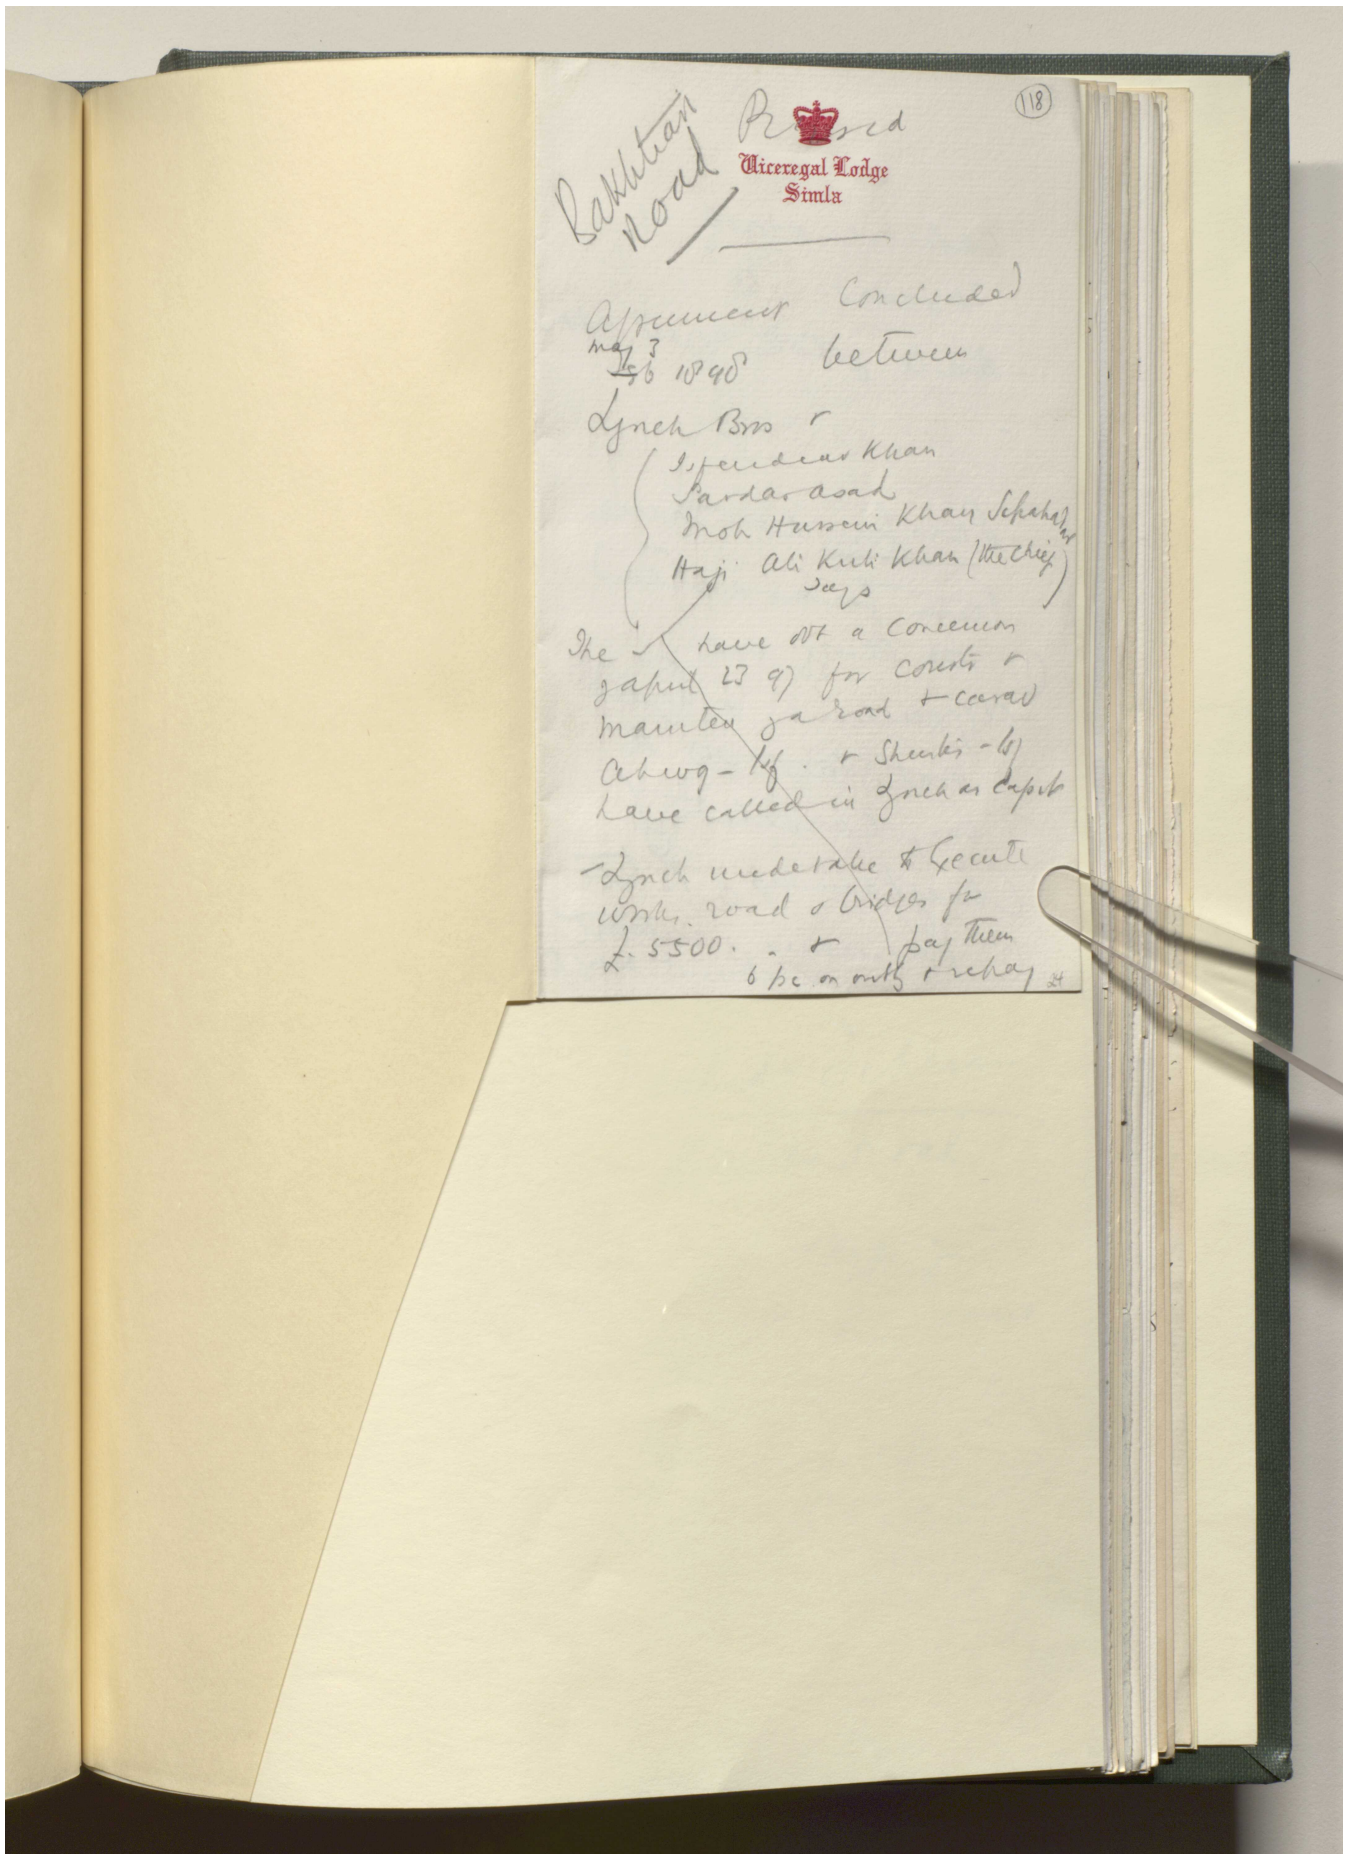 118
Bakhtiari
Road
Revised
Viceregal Lodge
Simla
Agreement Concluded
May 3
Feb 1898 between
Lynch Bros &
Isfendiar Khan
Sardar Asad
Moh Hussein Khan Sepahdar
Haji Ali Kuli Khan (the Chief)
says
The have obt a Concession
of April 23 97 for constr &
mainten of a road & carav
Ahwaz - Isf. & Shuster - Isf
have called in Lynch as Capit
- Lynch undertake to Execute
works. road & bridges for
£. 5500. . & pay them
6 pc on outlay & repay